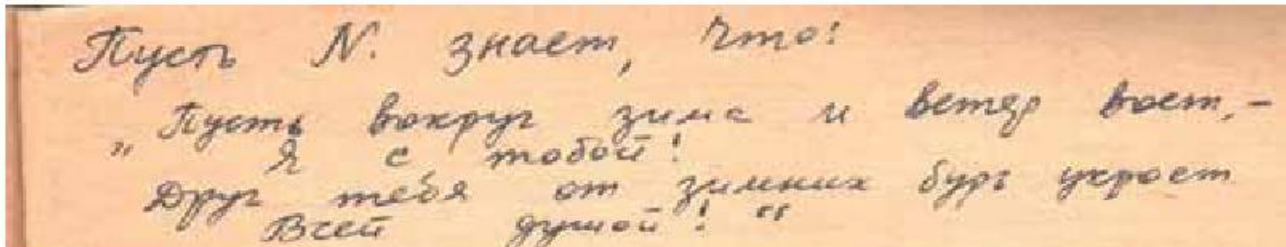 Пусть N. знает, что:
„Пусть вокруг зима и ветер воет,–
Я с тобой!
Друг тебя от зимних бурь укроет
Всей душой!“